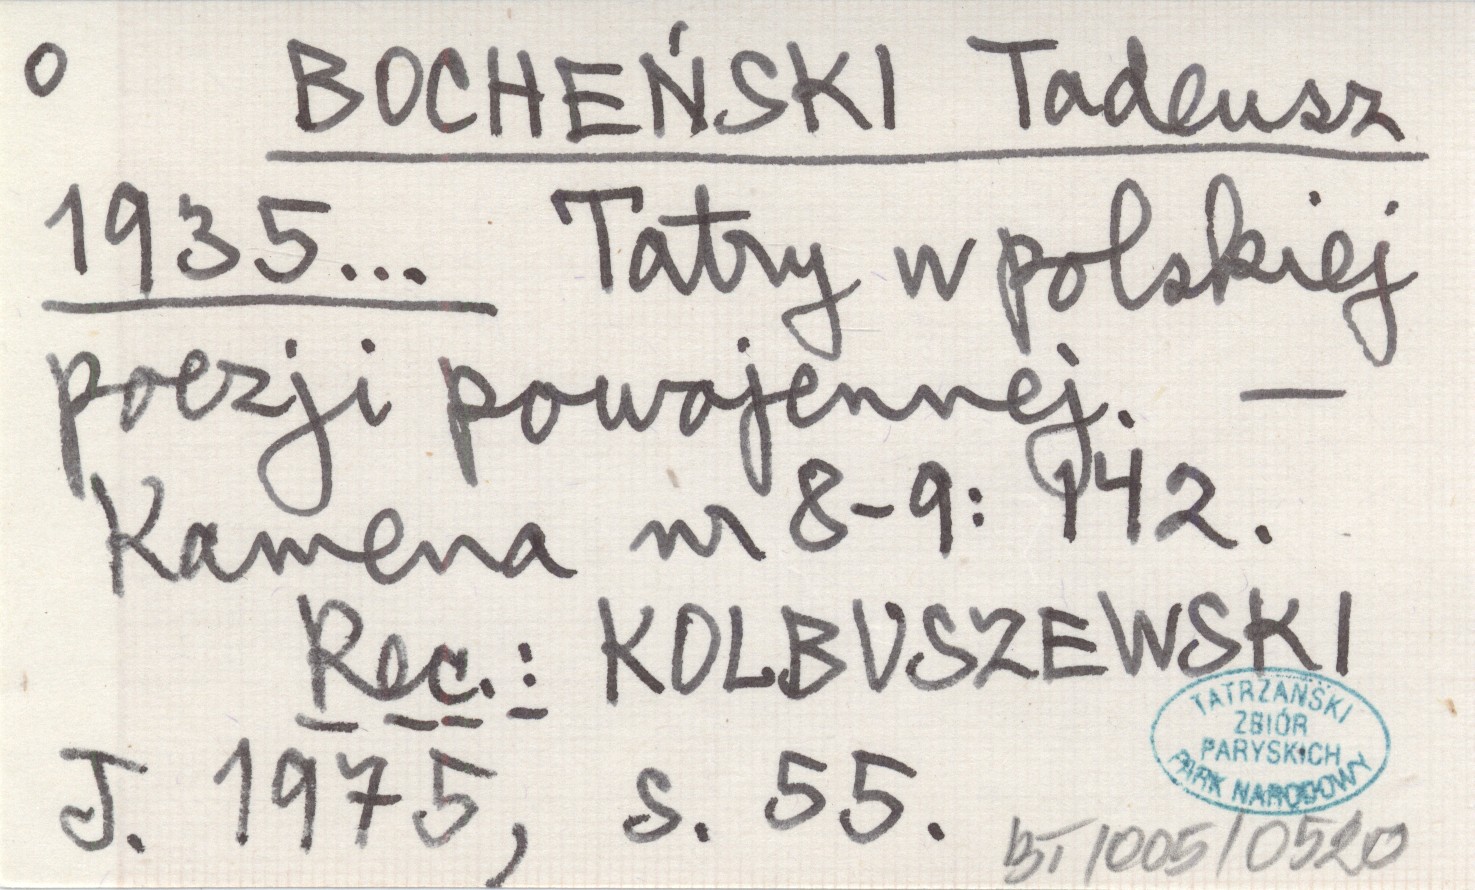 o BOCHEŃSKI Tadeusz
1935... Tatry w polskiej
poezji powojennej. —
Kamena nr 8-9: 142.
Rec.: KOLBUSZEWSKI
J. 1975, s. 55.
TATRZAŃSKI
ZBIÓR
PARYSKICH
PARK NARODOWY
BT/005/0520